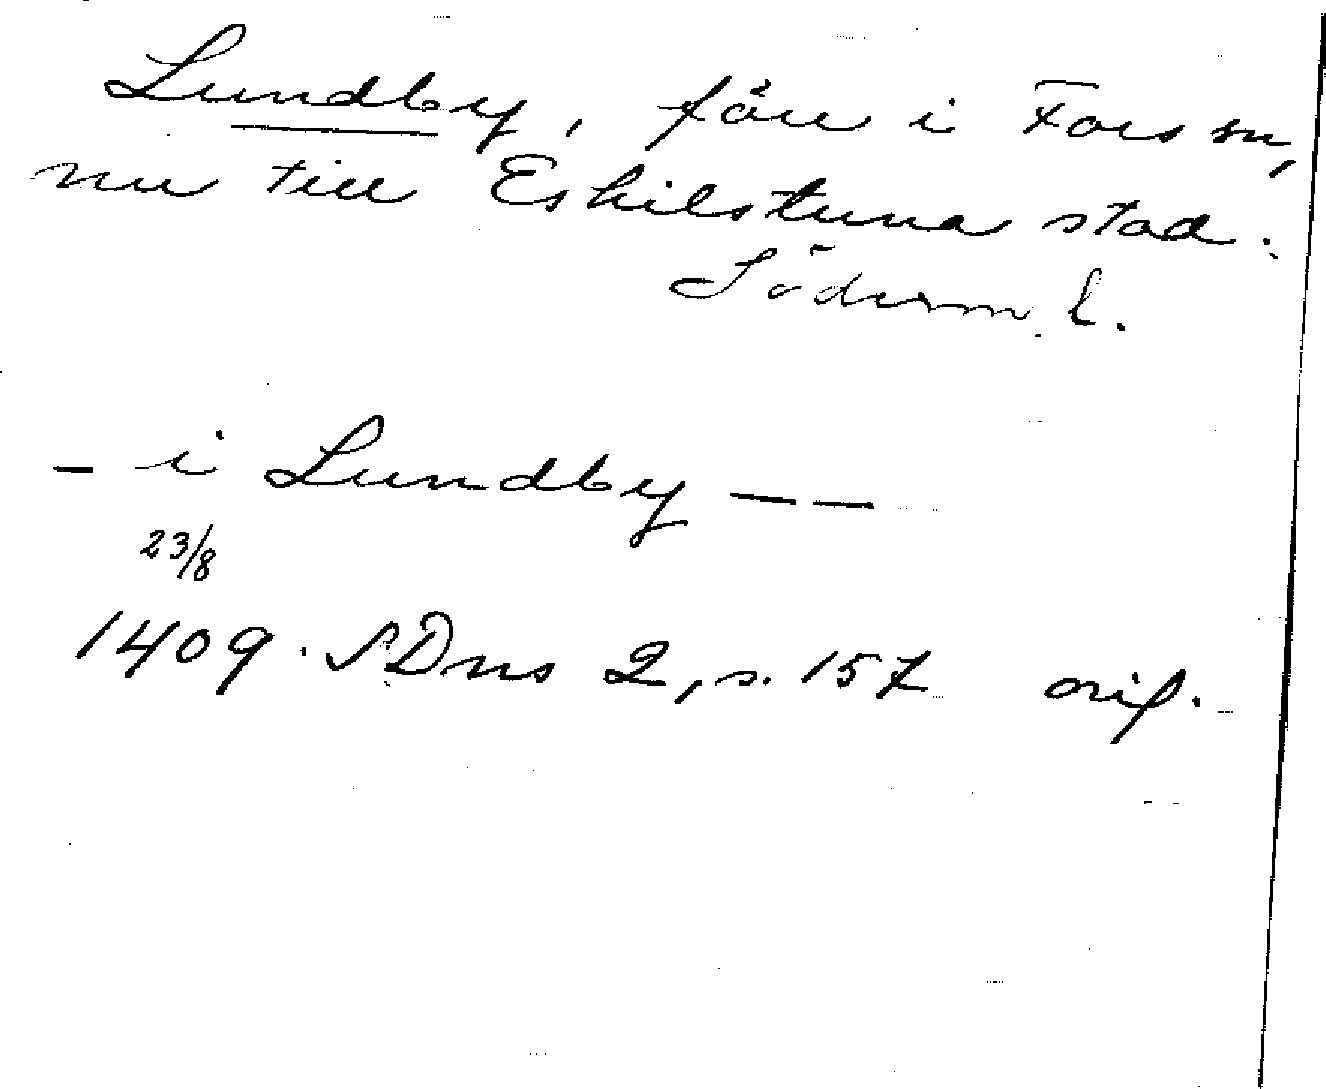 Lundby, förr i Fors sn,
nu till Eskilstuna stad.
Söderm. l.
- i Lundby - -
23/8
1409. SDns 2, s. 157 orig.